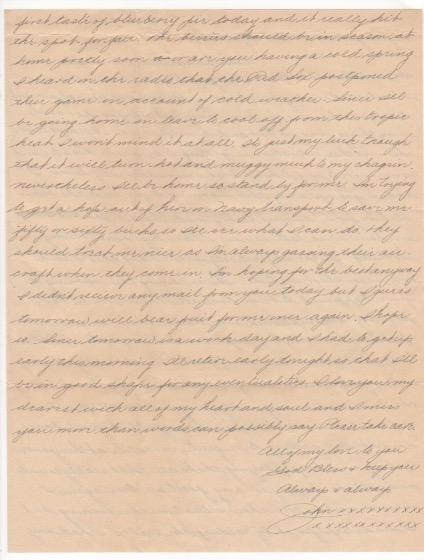 first taste of blueberry pie today and it really hit
the spot for fair. The berries should be in season at
home pretty soon now or are you having a cold spring
I heard on the radio that the Red Sox postponed
their game on account of cold weather. Since I'll
be going home on leave to cool off from this tropic
heat I won't mind it at all. It's just my luck though
that it will turn hot and muggy much to my chagrin.
nevertheless I'll be home so stand by for me. I'm trying
to get a hop out of here on Navy transport to save me
fifty or sixty bucks so I'll see what I can do. they
should treat me nice as I'm always gassing their air
craft when they come in. I'm hoping for the best anyway
I didn't receive any mail from you today but I guess
tomorrow will bear fruit for me once again. I hope
so. Since tomorrow is a work day and I had to get up
early this morning I'll retire early tonight so that I'll
be in good shape for any eventualities. I love you my
dearest with all of my heart and soul and I miss
you more than words can possibly say. Please take care.
All of my love to you
God Bless & keep you
Always & always
John xxxxxxxxxx
xxxxxxxxxxxx